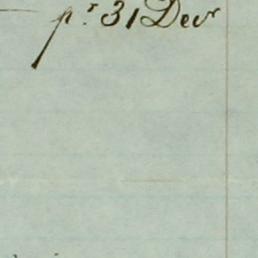 pr 31 Decr